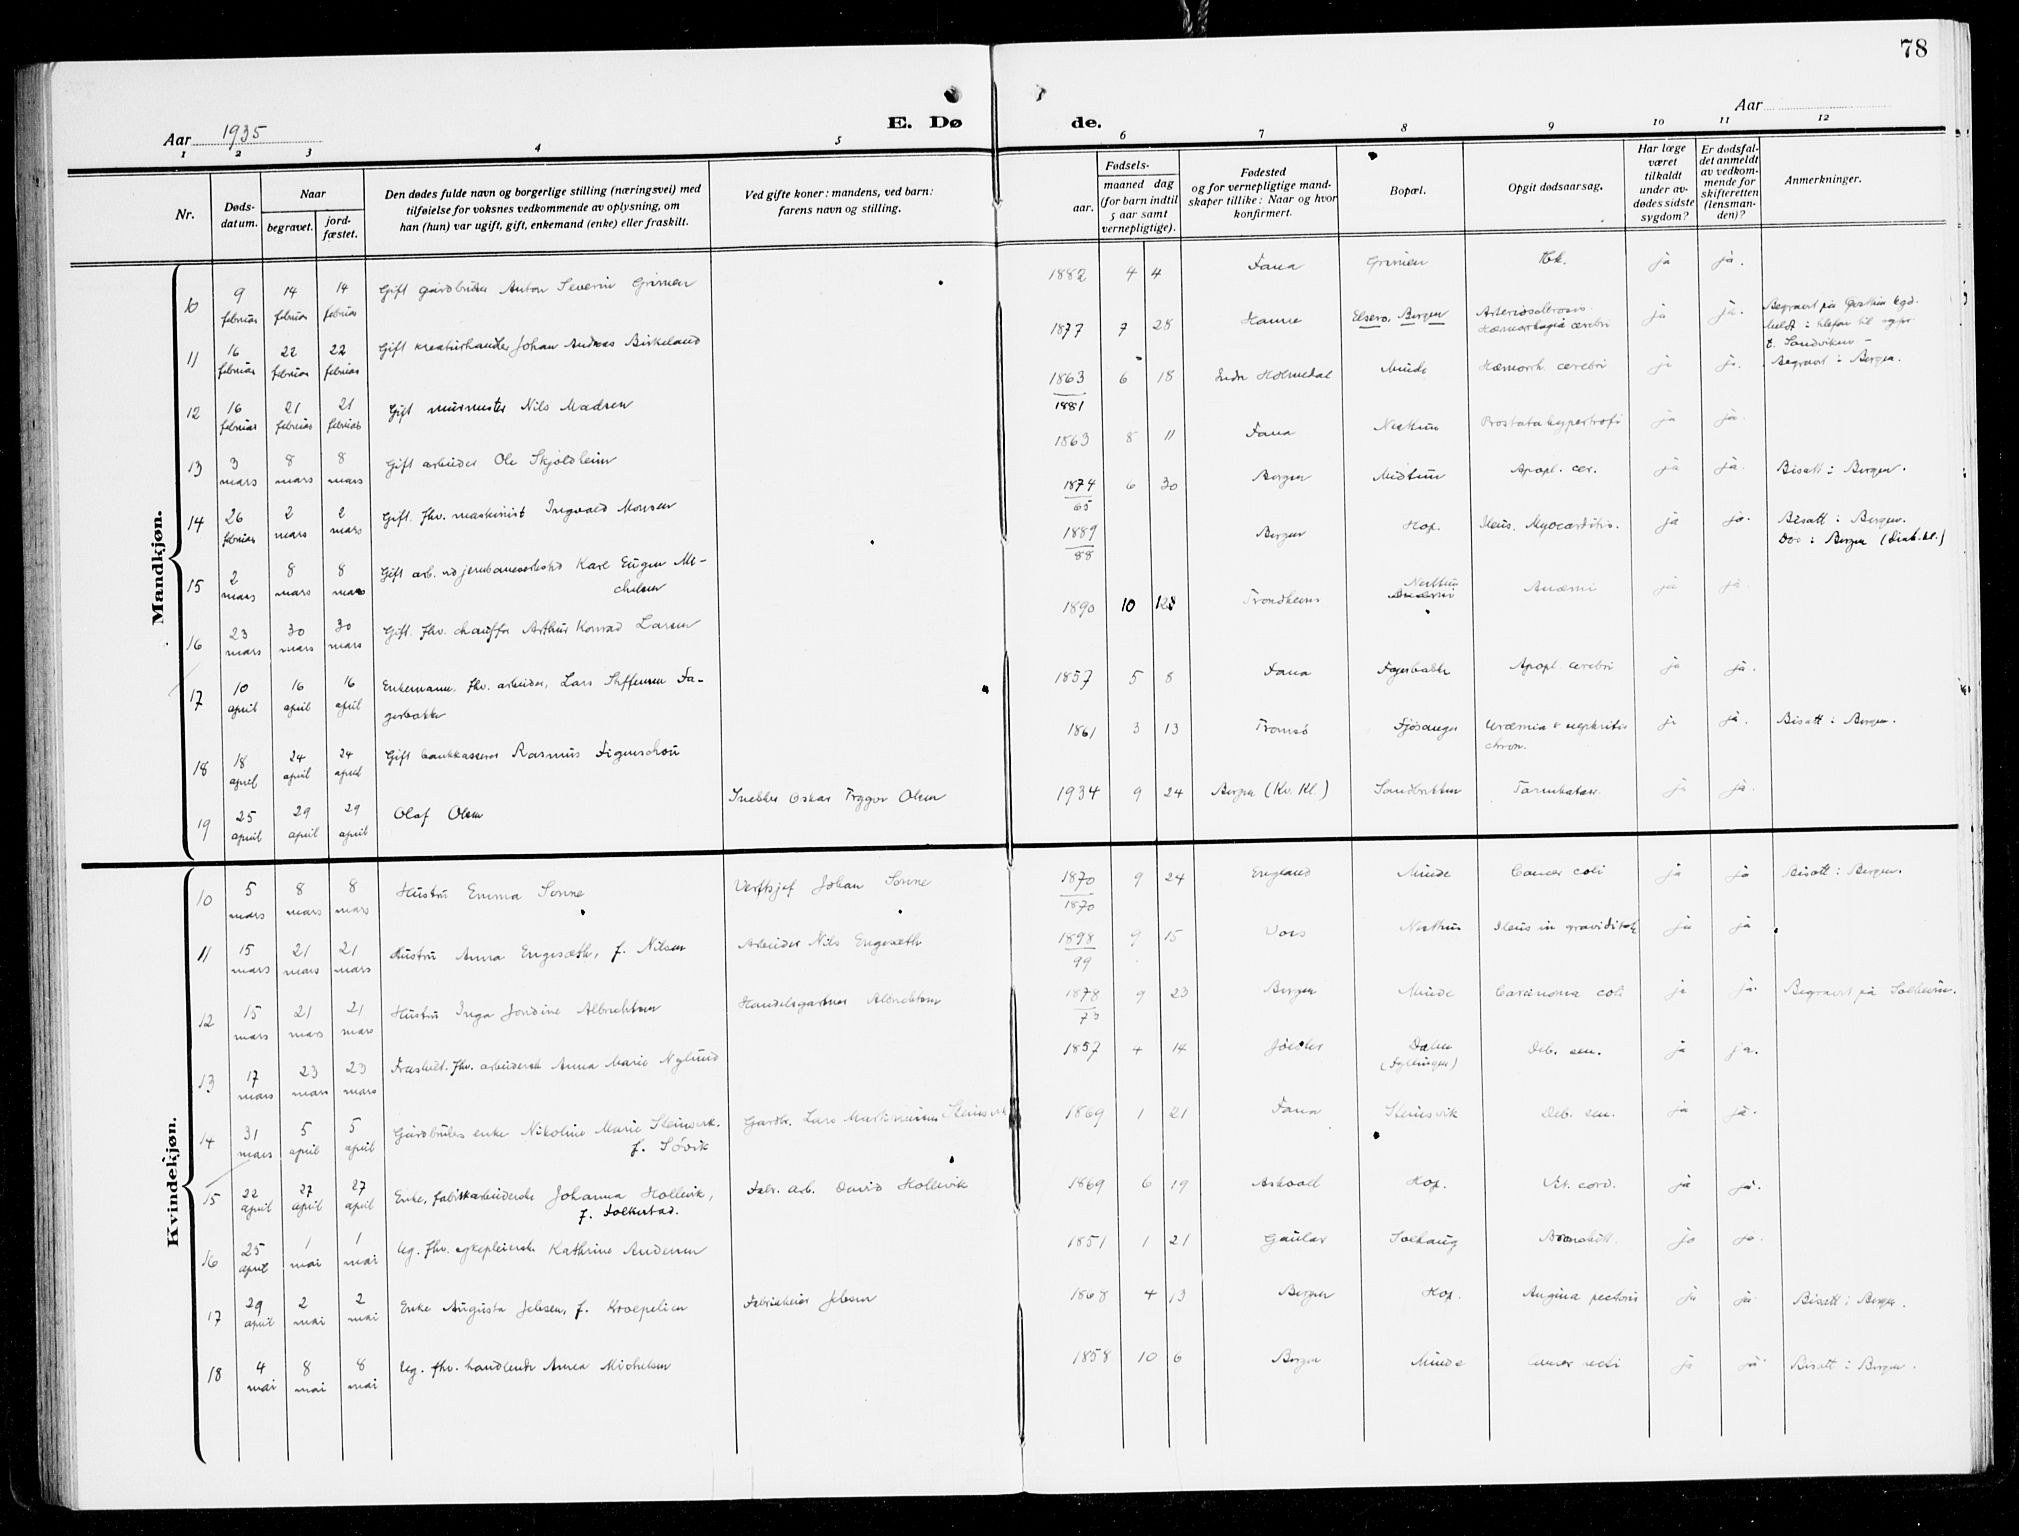 78
Aar 1935
E. Dø
de.
Aar
1 2 3 4 5 6 7 8 9 10 11 12
Nr.
Døds-
datum.
Naar
begravet.
jord-
fæstet.
Den dødes fulde navn og borgerlige stilling (næringsvei) med
tilføielse for voksnes vedkommende av oplysning, om
han (hun) var ugift, gift, enkemand (enke) eller fraskilt.
Ved gifte koner: mandens, ved barn:
farens navn og stilling.
Fødsels-
aar.
maaned dag
(for barn indtil
5 aar samt
vernepligtige).
Fødested
og for vernepligtige mand-
skaper tillike: Naar og hvor
konfirmert.
Bopæl.
Opgit dødsaarsag.
Har læge
været
tilkaldt
under av-
dødes sidste
sygdom?
Er dødsfal-
det anmeldt
av vedkom-
mende for
skifteretten
(lensman-
den)?
Anmerkninger.
Mandkjøn.
10 9 februar 14 februar 14 februar Gift gårdbruker Anton Severin Grimen 1882 4 4 Fana Grimen ja ja.
11 16 februar 22 februar 22 februar Gift kreaturhandler Johan Andreas Birkeland 1877 7 28 Elsero, Bergen Arteriosclerosis Hæmorrhagia cerebri ja ja.
12 16 februar 21 februar 21 februar Gift murmester Nils Madsen 1863 1881 6 18 Indre Holmedal Minde Hæmorrh. cerebri ja ja. Begravet i Bergen.
13 3 mars 8 mars 8 mars Gift arbeider Ole Skjoldheim 1863 8 11 Fana Nesttun Prostatahypertrofi ja ja.
14 26 februar 2 mars 2 mars Gift. fhv. maskinist Ingvald Monsen 1874 65 6 30 Bergen Midtun Apopl. cer. ja ja. Bisatt i Bergen.
15 2 mars 8 mars 8 mars Gift arb. ved jernbaneverksted Karl Eugen Mi-
chelsen 1889 88 Bergen Hop. Ileus. Myocarditis. ja ja. Bisatt i Bergen.
Død i Bergen (Diak.kl.)
16 23 mars 30 mars 30 mars Gift. fhv. chauffør Arthur Konrad Larsen 1890 10 Trondheim Nesttun Anæmi ja ja.
17 10 april 16 april 16 april Enkemann. fhv. arbeider, Lars Steffensen Fa-
gerbakke 1857 5 8 Fana Fagerbakke Apopl. cerebri ja ja.
18 18 april 24 april 24 april Gift bankkasserer Rasmus Figenschou 1861 3 13 Tromsø Fjøsanger Uræmia & nephritis
chron. ja ja. Bisatt i Bergen.
19 25 april 29 april 29 april Olaf Olsen Snekker Oskar Trygve Olsen 1934 9 24 Bergen (Kv. Kl.) Sandbrekken Tarmkatarr. ja ja.
Kvindekjøn.
10 5 mars 8 mars 8 mars Hustru Emma Sonne Verftsjef Johan Sonne 1870 1870 9 24 England Minde Cancer coli ja ja Bisatt i Bergen.
11 15 mars 21 mars 21 mars Hustru Anna Engesæth, f. Nilsen Arbeider Nils Engesæth 1898 99 9 15 Voss Nesttun Ileus in graviditate ja ja
12 15 mars 21 mars 21 mars Hustru Inga Jordine Albrektsen Handelsgartner Albrektsen 1878 73 9 23 Bergen Minde Carcinoma coli ja ja. Begravet på Solheim.
13 17 mars 23 mars 23 mars Fraskilt. fhv. arbeiderske Anna Marie Nylund 1857 4 14 Jølster Dalen
(Fyllingen) Deb. sen. ja ja.
14 31 mars 5 april 5 april Gårdbrukers enke Nikoline Marie Steinsvik.
f. Søvik Gardbr. Lars Steinsvik 1869 1 21 Fana Steinsvik Deb. sen. ja ja.
15 22 april 27 april 27 april Enke, fabrikkarbeiderske Johanna Hollevik,
f. Folkestad. Fabr. arb. David Hollevik 1869 6 19 Askvoll Hop. Vit. cord. ja ja.
16 25 april 1 mai 1 mai Ug. fhv. sykepleierske Kathrine Andersen 1851 1 21 Gaular Solhaug Bronchitt. ja ja.
17 29 april 2 mai 2 mai Enke Augusta Jebsen, f. Kroepelien Fabrikkeier Jebsen 1868 4 13 Bergen Hop. Angina pectoris ja ja. Bisatt i Bergen.
18 4 mai 8 mai 8 mai Ug. fhv. handlende Anna Michelsen 1858 10 6 Bergen Minde Cancer recti ja ja. Bisatt i Bergen.